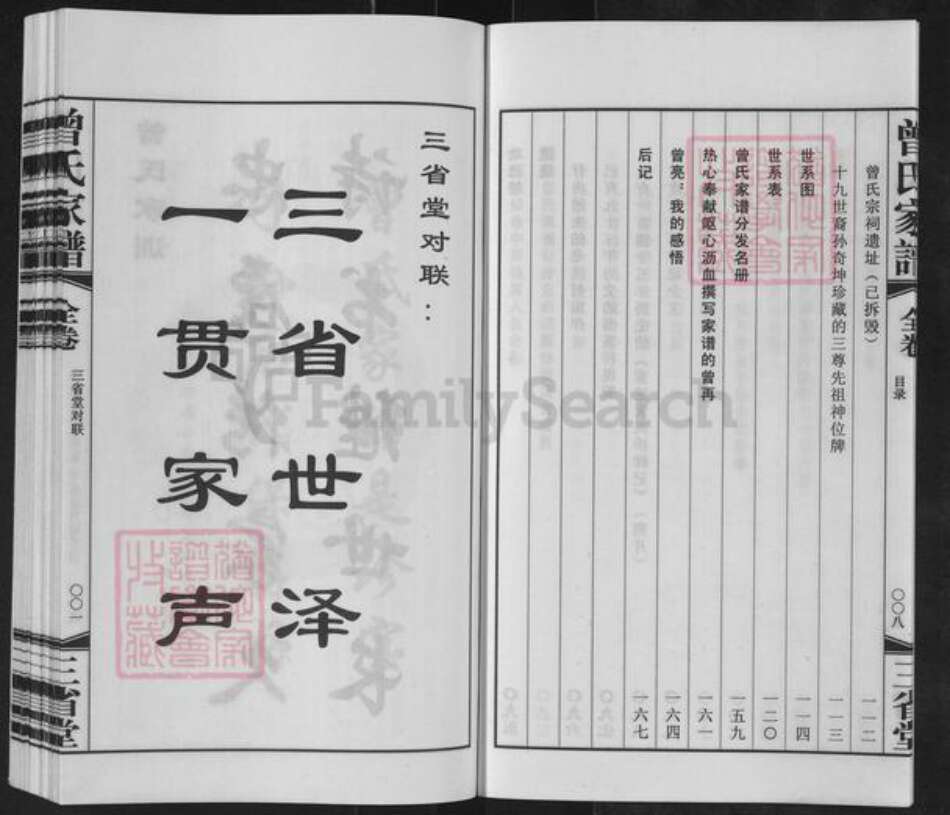 曾氏家譜
全卷
目录
〇〇八
三省堂
曾氏宗祠遗址（已拆毁） 一一二
十九世裔孙奇坤珍藏的三尊先祖神位牌 一一三
世系图 一一四
世系表 一二〇
曾氏家谱分发名册 一五九
热心奉献呕心沥血撰写家谱的曾再 一六一
曾亮：我的感悟 一六四
后记 一六七
三省堂对联：
三省世泽
一贯家声
曾氏家譜
全卷
三省堂对联
〇〇一
三省堂
FamilySearch